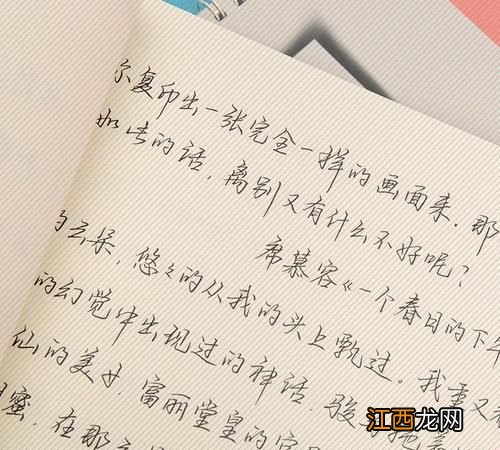 尔复印出一张完全一样的画面来.那
如此的话,离别又有什么不好呢?
席慕容《一个春日的下午
的云朵,悠々的从我的头上飘过。我重又
的幻觉中出现过的神话.骏马拖着
仙的美女.富丽堂皇的宫
蜜,在那
江西龙网